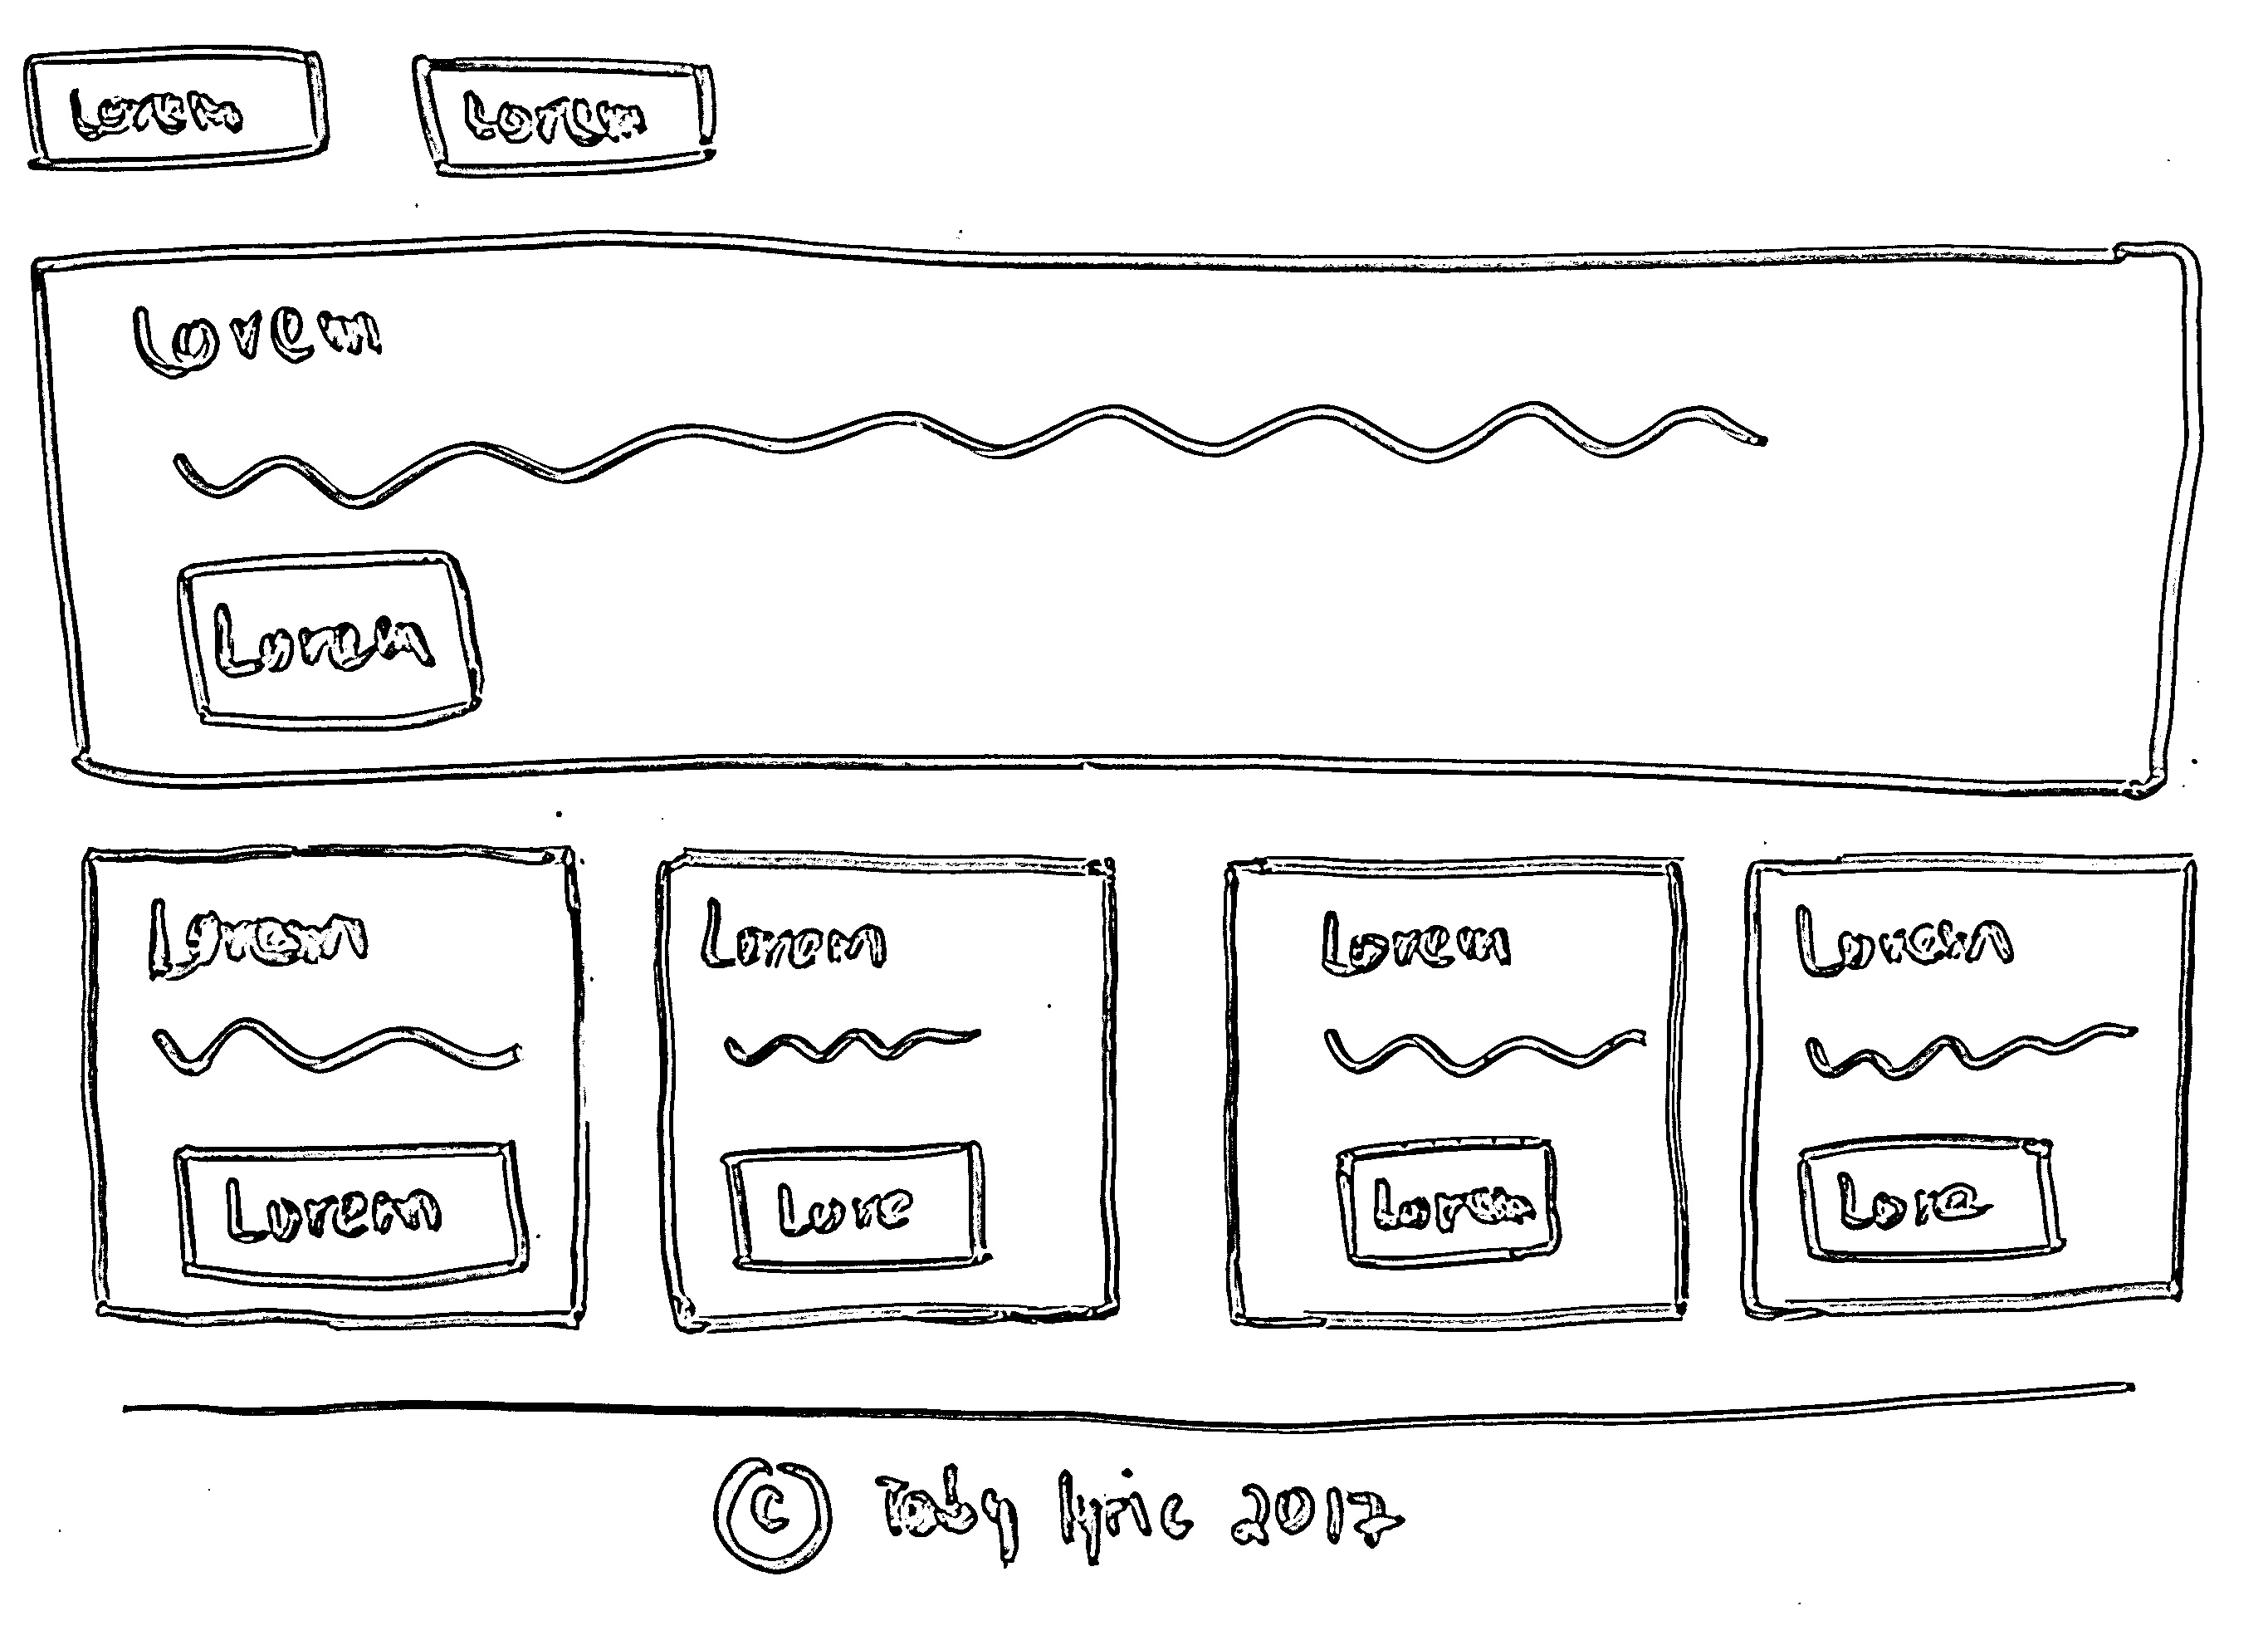 Lorem Lorem
Lorem
Lorem
Lorem Lorem Lorem Lorem
Lorem Lore Lorem Lore
© Toby lyric 2017